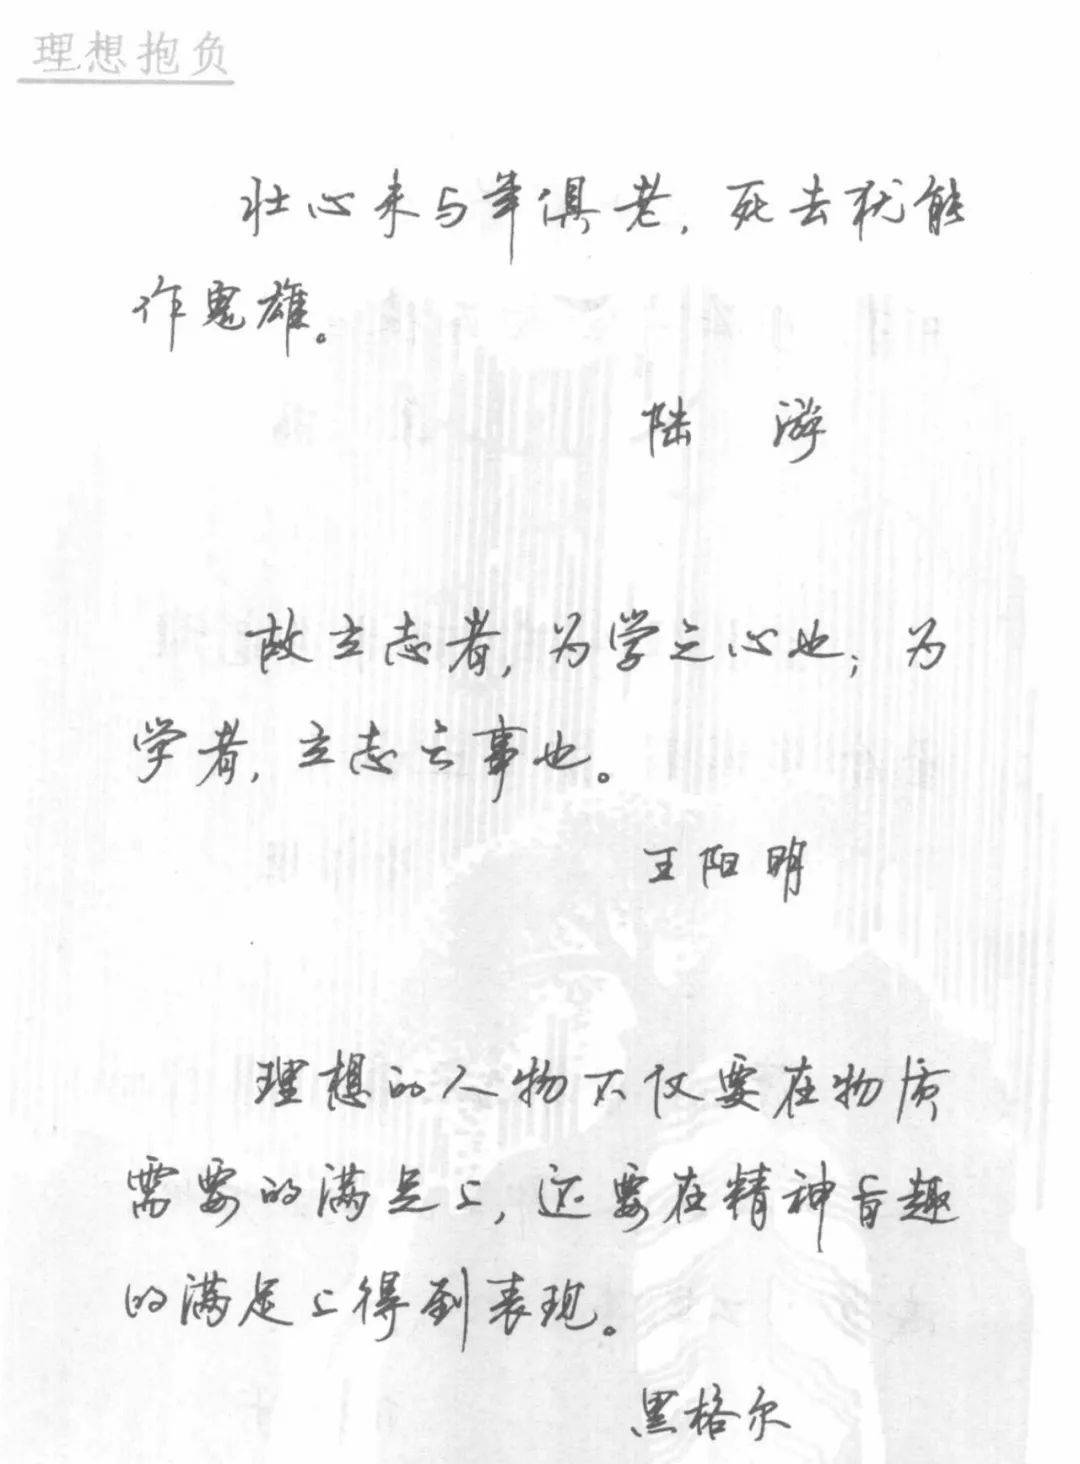 理想抱负
壮心未与年俱老，死去犹能
作鬼雄。
陆 游
故立志者，为学之心也；为
学者，立志之事也。
王阳明
理想的人物不仅要在物质
需要的满足上，还要在精神旨趣
的满足上得到表现。
黑格尔